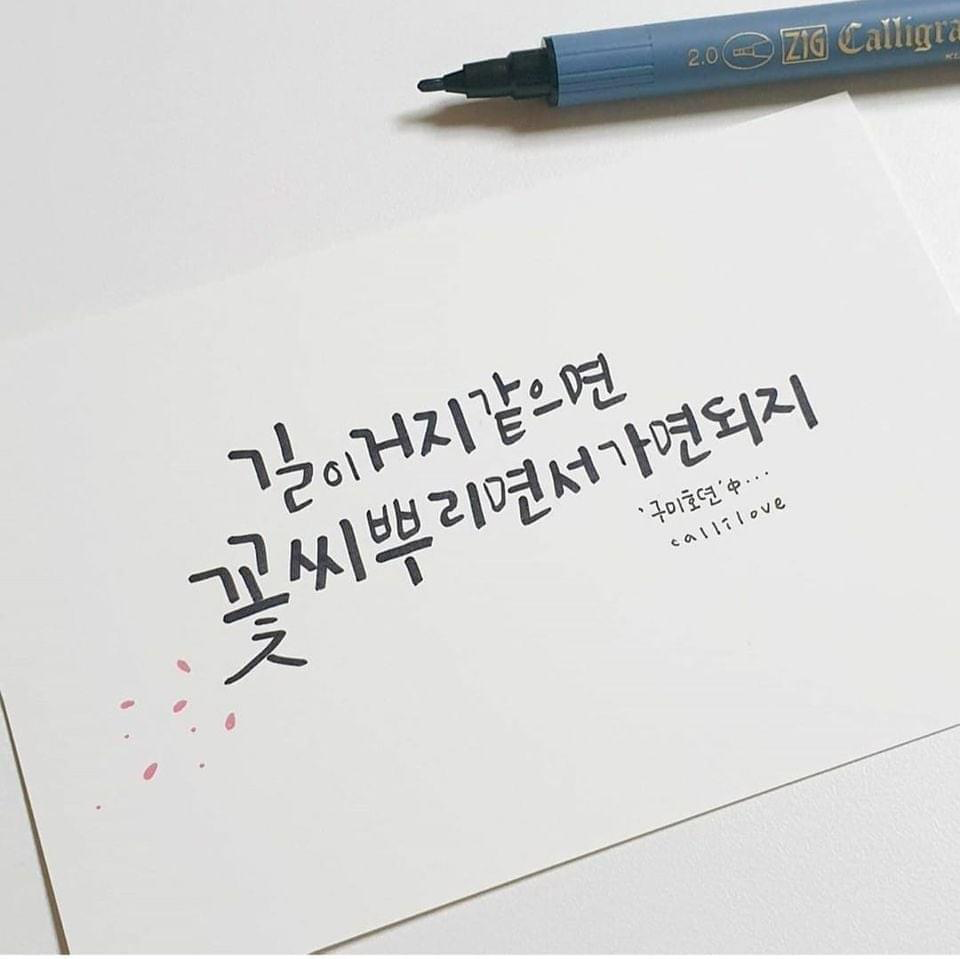 2.0 ZIG Calligra
길이 거지같으면
꽃씨 뿌리면서 가면되지
'구미호뎐' 中...
callilove